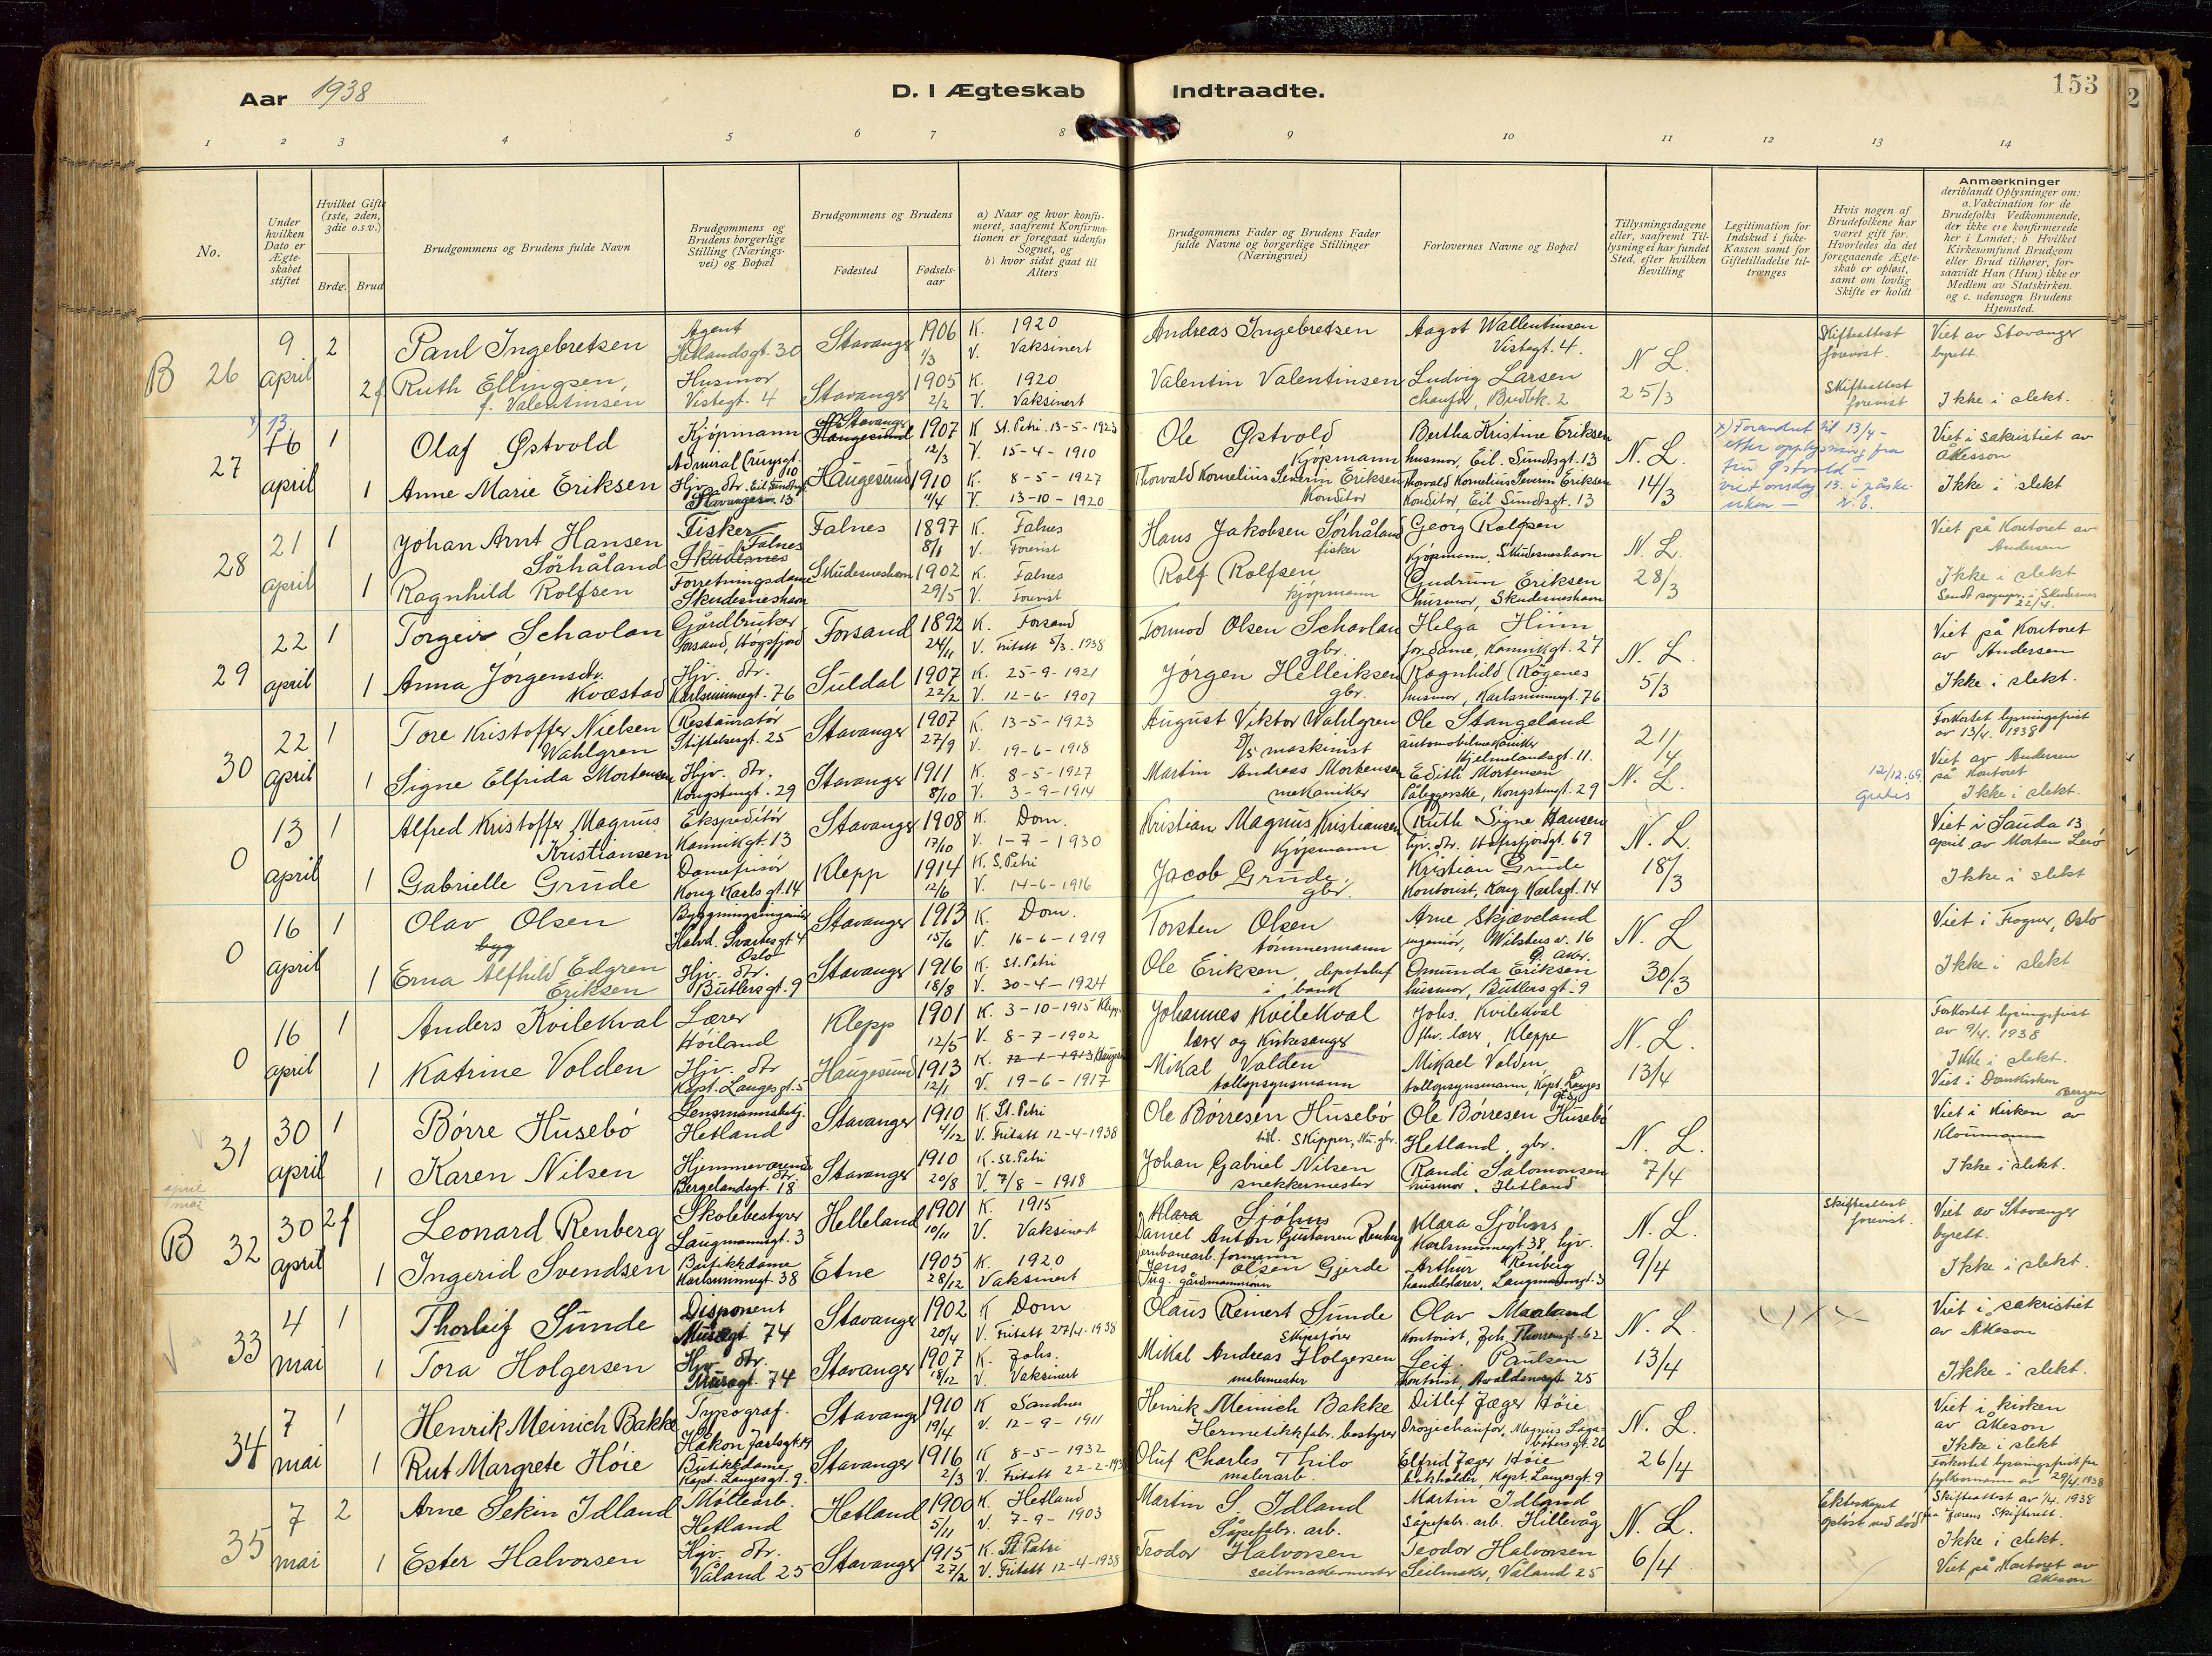 Aar 1938
D. I Ægteskab Indtraadte.
153
2
1 2 3 4 5 6 7 8 9 10 11 12 13 14
No.
Under hvilken Dato er Ægteskabet stiftet
Hvilket Gifte (1ste, 2den, 3die o.s.v.)
Brdg. Brud
Brudgommens og Brudens fulde Navn
Brudgommens og Brudens borgerlige Stilling (Næringsvei) og Bopæl
Brudgommens og Brudens
Fødested
Fødselsaar
a) Naar og hvor konfirmeret, saafremt Konfirmationen er foregaat udenfor Sognet, og
b) hvor sidst gaat til Alters
Brudgommens Fader og Brudens Fader fulde Navne og borgerlige Stillinger (Næringsvei)
Forlovernes Navne og Bopæl
Tillysningsdagene eller, saafremt Tillysning ei har fundet Sted, efter hvilken Bevilling
Legitimation for Indskud i fuke-Kassen samt for Giftetilladelse tiltrænges
Hvis nogen af Brudefolkene har været gift før. Hvorledes da det foregaaende Ægteskab er opløst, samt om lovlig Skifte er holdt
Anmærkninger
deriblandt Oplysninger om: a. Vakcination for de Brudefolks Vedkommende, der ikke ere konfirmerede her i Landet; b Hvilket Kirkesamfund Brudgom eller Brud tilhører, forsaavidt Han (Hun) ikke er Medlem av Statskirken. og c. udensogn Brudens Hjemsted.
B 26 9 april 2 Paul Ingebretsen Agent Hetlandsgt. 30 Stavanger 1906 1/3 K. 1920 V. Vaksinert Andreas Ingebretsen Aagot Wallentinsen Vistegt. 4. N. L. 25/3 Skifteattest forevist. Viet av Stavanger byrett.
2 f Ruth Ellingsen, f. Valentinsen Husmor Vistegt. 4 Stavanger 1905 2/2 K. 1920 V. Vaksinert Valentin Valentinsen Ludvig Larsen chaufør, 2 Skifteattest forevist Ikke i slekt.
27 x) 13 16 april 1 Olaf Østvold Kjøpmann Admiral Cruysgt. 10 Stavanger Haugesund 1907 12/3 K St. Petri. 13-5-1923 V. 15-4-1910 Ole Østvold Kjøpmann Bertha Kristine Eriksen husmor, Eil. Sundtsgt. 13 N. L. 14/3 x) Forandret til 13/4 - etter opplysning fra fru Østvold - viet onsdag 13. i påske-uken - Viet i sakristiet av Åkesson
1 Anne Marie Eriksen Hjv. dtr. Eil. Sundtsgt. Stavanger 13 Haugesund 1910 11/4 K. 8-5-1927 V. 13-10-1920 Thorvald Kornelius Severin Eriksen Konditor Thorvald Kornelius Severin Eriksen Konditor, Eil. Sundtsgt. 13 Ikke i slekt
28 21 april 1 Johan Arnt Hansen Sørhåland Fisker Falnes Skudesnes Falnes 1897 8/1 K. Falnes V. Forevist Hans Jakobsen Sørhåland fisker Georg Rolfsen Kjøpmann, Skudesneshavn N. L. 28/3 Viet på Kontoret av Andersen
1 Ragnhild Rolfsen Forretningsdame Skudesneshavn Skudesneshavn 1902 29/5 K. Falnes V. Forevist Rolf Rolfsen kjøpmann Gudrun Eriksen husmor, Skudesneshavn Ikke i slekt Sendt sogepr. i Skudesnes 22/4.
29 22 april 1 Torgeir Schavlan Gårdbruker Forsand, Høgsfjord Forsand 1892 24/11 K. Forsand V. Fritatt 5/3. 1938 Tormod Olsen Schavlan gbr. Helga Hinn Kannikgt. 27 N. L. 5/3 Viet på Kontoret av Andersen
1 Anna Jørgensdtr. Kvæstad Hjv. dtr. Karlsminnegt. 76 Suldal 1907 22/2 K. 25-9-1921 V. 12-6-1907 Jørgen Helleiksen gbr. Ragnhild Røgenes husmor, Karlsminnegt. 76 Ikke i slekt.
30 22 april 1 Tore Kristoffer Nielsen Wahlgren Restauratør Stiftelsesgt. 25 Stavanger 1907 27/9 K. 13-5-1923 V. 19-6-1918 August Viktor Wahlgren D/S maskinist Ole Stangeland automobilmekaniker Hjelmelandsgt. 11. 21/4 N. L. Forkortet lysningsfrist av 13/4. 1938
1 Signe Elfrida Mortensen Hjv. dtr. Kongstengt. 29 Stavanger 1911 8/10 K. 8-5-1927 V. 3-9-1914 Martin Andreas Mortensen mekaniker Edith Mortensen Påleggerske, Kongstengt. 29 12/12.69. Gratis Viet av Andersen på Kontoret Ikke i slekt.
0 13 april 1 Alfred Kristoffer Magnus Kristiansen Ekspeditør Kannikgt. 13 Stavanger 1908 17/10 K. Dom. V. 1-7-1930 Kristian Magnus Kristiansen Kjøpmann Ruth Signe Hansen hjv. dtr. Hafrsfjordgt. 69 N. L. 18/3 Viet i Sauda 13 april av Morten Lerø
1 Gabrielle Grude Damefrisør Kong Karls gt. 14 Klepp 1914 12/6 K. S. Petri V. 14-6-1916 Jacob Grude. gbr. Kristian Grude Kontorist, Kong Karlsgt. 14 Ikke i slekt
0 16 april 1 Olav Olsen Bygningsingeniør Halvd. Svartes gt 4 Oslo Stavanger 1913 15/6 K. Dom. V. 16-6-1919 Torsten Olsen tømmermann Arne Skjæveland ingeniør, Wilsters v. 16 N. L 30/3 Viet i Frogner, Oslo
byg
1 Erna Alfhild Edgren Eriksen Hjv. dtr. Butlersgt. 9 Stavanger 1916 18/8 K. St. Petri V. 30-4-1924 Ole Eriksen, depotchef i bank Omunda Eriksen husmor, Butlersgt. 9 Ikke i slekt
0 16 april 1 Anders Kvilekval Lærer Høiland Klepp 1901 12/5 K. 3-10-1915 Klepp V. 8-7-1902 Johannes Kvilekval lærer og Kirkesanger Johs. Kvilekval fhv. lærer, Kleppe N. L. 13/4 Forkortet lysningsfrist av 9/4. 1938
1 Katrine Volden Hjv. dtr Kapt. Langesgt. 5 Haugesund 1913 12/1 K. 12-1-1913 V. 19-6-1917 Mikal Valden tollopsynsmann Mikael Volden, tollopsynsmann, Kapt. Langes gt. 5 Ikke i slekt. Viet i Domkirken Bergen
31 30 april 1 Børre Husebø Lensmannsbetj. Hetland Stavanger 1910 4/12 K. St. Petri V. Fritatt 12-4-1938 Ole Børresen Husebø tidl. Skipper, nu gbr. Ole Børresen Husebø Hetland, gbr. N. L. 7/4 Viet i Kirken av
1 Karen Nilsen Hjemmeværende dtr. Bergelandsgt. 18 Stavanger 1910 20/8 K. St. Petri V. 7/8-1918 Johan Gabriel Nilsen snekkermester Randi Salomonsen husmor, Hetland Ikke i slekt.
april mai
B 32 30 april 2 f Leonard Renberg Skolebestyrer Laugmannsgt. 3 Helleland 1901 10/11 K. 1915 V. Vaksinert Klara Sjøhus Daniel Anton Gustavsen Renberg jernbanearb. formann Klara Sjøhus Karlsminnegt 38 hjv. N. L. 9/4 Skifteattest forevist. Viet av Stavanger byrett.
1 Ingerid Svendsen Butikkdame Karlsminnegt. 38 Etne 1905 28/12 K. 1920 Vaksinert Jens Olsen Gjerde Arthur Renberg handelslærer, Laugmannsgt. 3 Ikke i slekt.
33 4 mai 1 Thorleif Sunde Disponent Musegt. 74 Stavanger 1902 20/4 K Dom V. Fritatt 27/4.1938 Olaus Reinert Sunde Skipsfører Olav Maaland Kontorist, Joh. Thorsensgt. 62 N. L. 13/4 Viet i sakristiet av Åkeson
1 Tora Holgersen Hjv. dtr. Musegt. 74 Stavanger 1907 18/12 K. Johs. V. Vaksinert Mikal Andreas Holgersen malermester Leif Paulsen Kontorist, Avaldsnesgt. 25 Ikke i slekt.
34 7 mai 1 Henrik Meinich Bakke Typograf. Håkon Jarlsgt. 19 Stavanger 1910 19/4 K Sandnes V. 12-9-1911 Henrik Meinich Bakke Hermetikkfabr. bestyrer Ditlef Jæger Høie Drosjechaufør, Magnus Lagabøtersgt. 26 N. L. 26/4 Viet i kirken av Åkeson
1 Rut Margrete Høie Butikkdame, Kapt. Langesgt. 9. Stavanger 1916 2/3 K 8-5-1932 V. Fritatt 22-2-193 Oluf Charles Thilo malerarb. Elfrid Jæger Høie bokholder, Kapt. Langesgt. 9 Ikke i slekt Forkortet lysningsfrist fra fylkesmann av 29/4.1938
35 7 mai 2 Arne Sekin Idland Møllearb. Hetland Hetland 1900 5/11 K. Hetland V. 7-9-1903 Martin S. Idland Såpefabr. arb. Martin Idland Såpefabr. arb. Hillevåg N. L. 6/4 Ekteskapet opløst ved død Skifteattest av 1/4. 1938 fra Jærens Skifterett.
1 Ester Halvorsen Hjv. dtr. Våland 25 Stavanger 1915 27/2 K. St. Petri V. Fritatt 12-4-1938 Teodor Halvorsen seilmakermester Teodor Halvorsen Seilmaker, Våland 25 Ikke i slekt. Viet på Kontoret av Åkeson